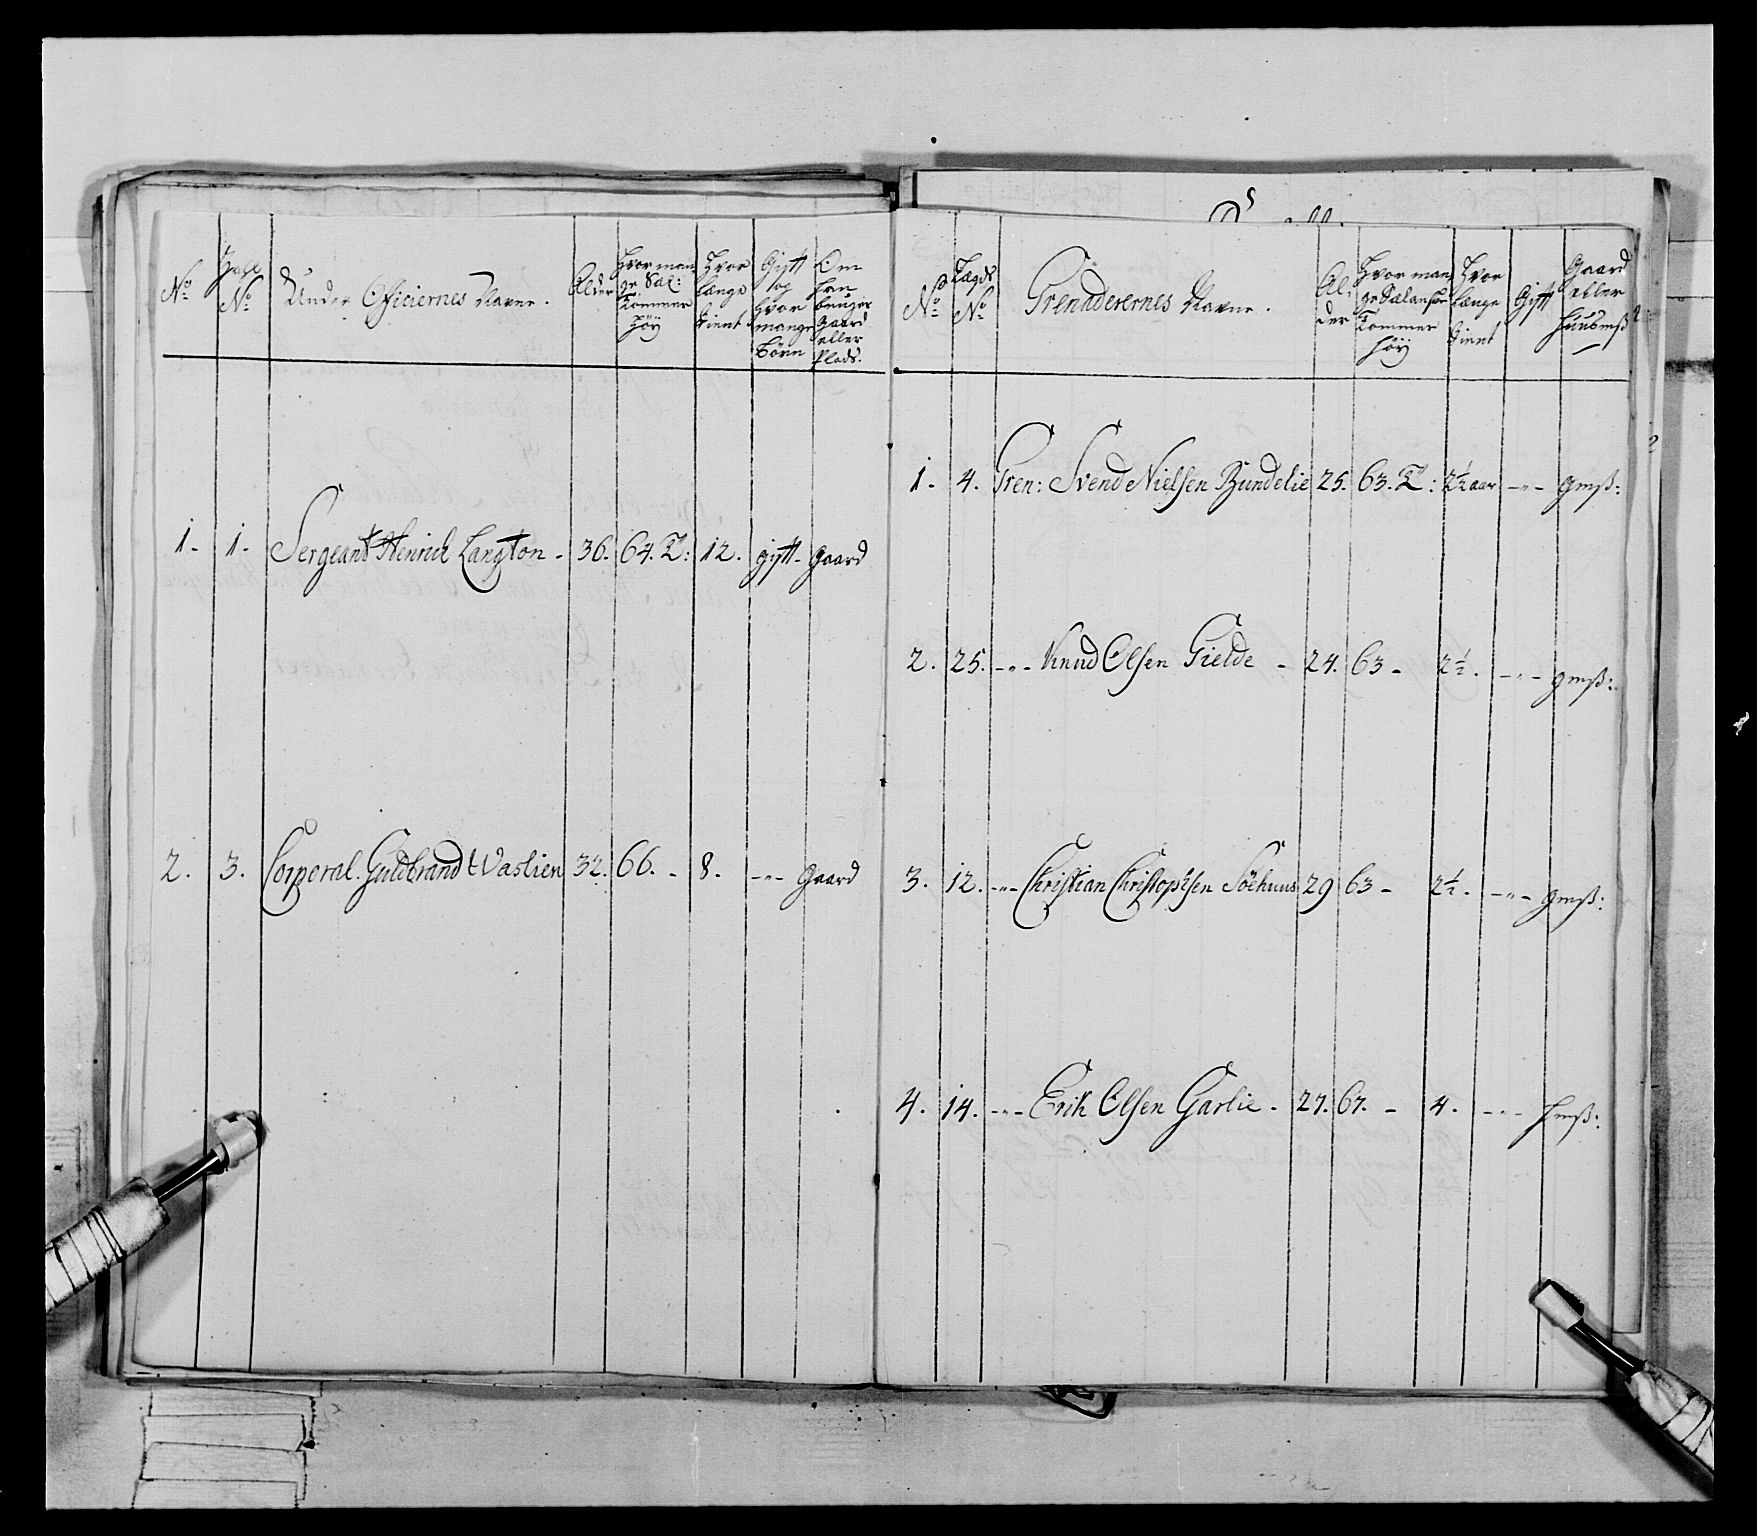 No
No
Under Officiernes Navne.
Alder
Hvor man
ge Sæl:
Tommer
höy
Hvor
længe
tient
Gift
og
hvor
mange
Börn
Om
han
bruger
Gaard
eller
Plads.
1. 1. Sergeant Henrich Langton. 36. 64. T: 12. gift. Gaard
2. 3. Corporal. Guldbrand Waslien 32. 66. - 8. -"- Gaard
No
Lægds
No
Grenaderernes Navne.
Al,
der
Hvor man
ge Sælandske
Tommer
höy
Hvor
længe
tient
Gift
Gaard
eller
Huusmß
1. 4. Gren: Svend Nielsen Bundelie 25. 63. T: 2½ aar -"- gmß:
2. 25. -"- Knud Olsen Gielde - 24. 63 - 2½. -"- gmß:
3. 12. -"- Christian Christophsen Söehuus 29 63 - 2½. -"- gmß:
4. 14. -"- Erik Olsen Garlie. 27. 67. - 4. -"- hmß: